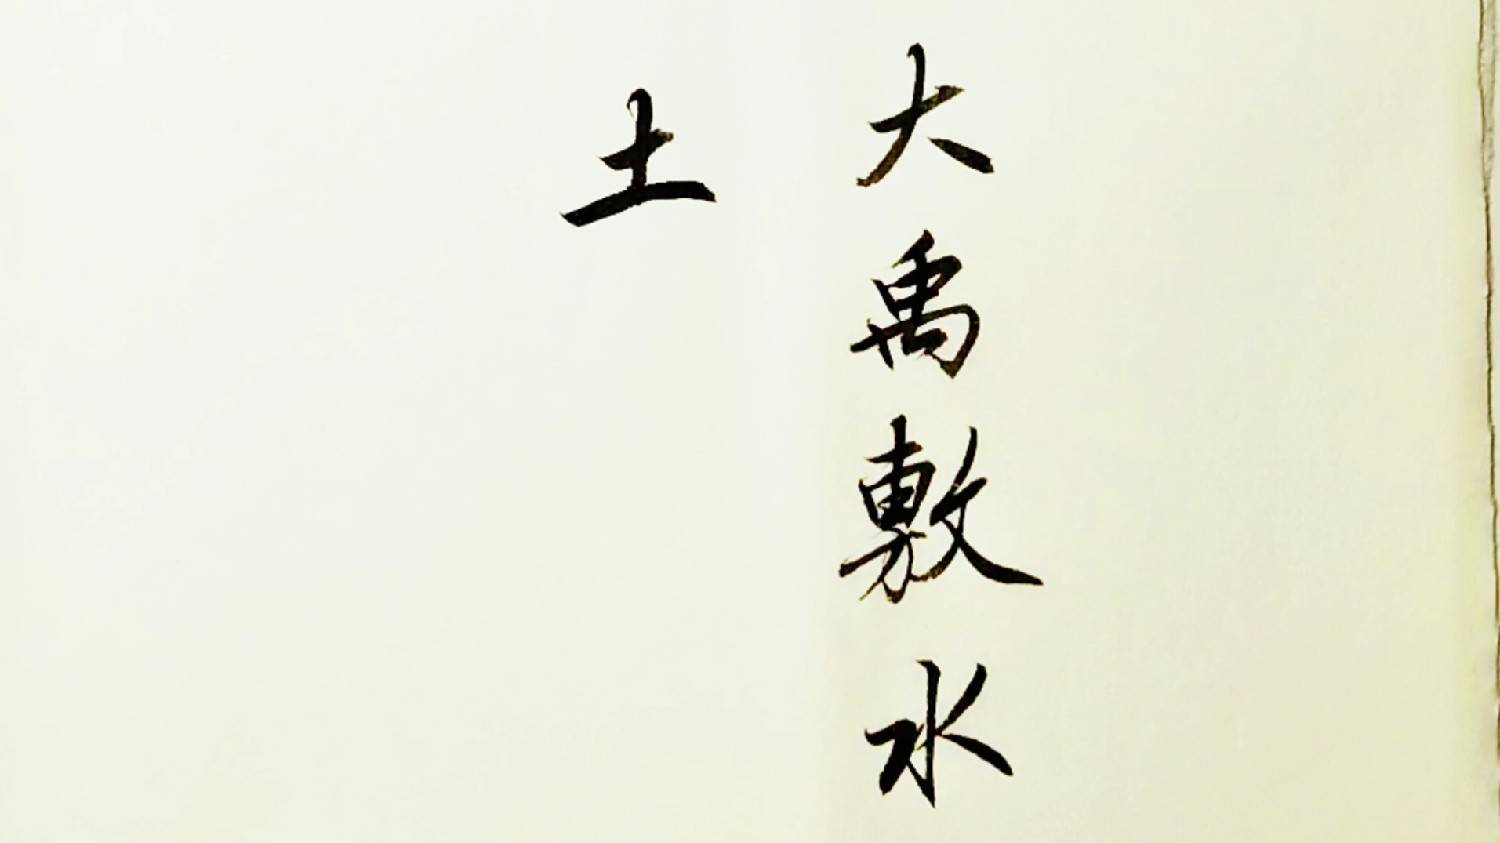 大禹敷水
土